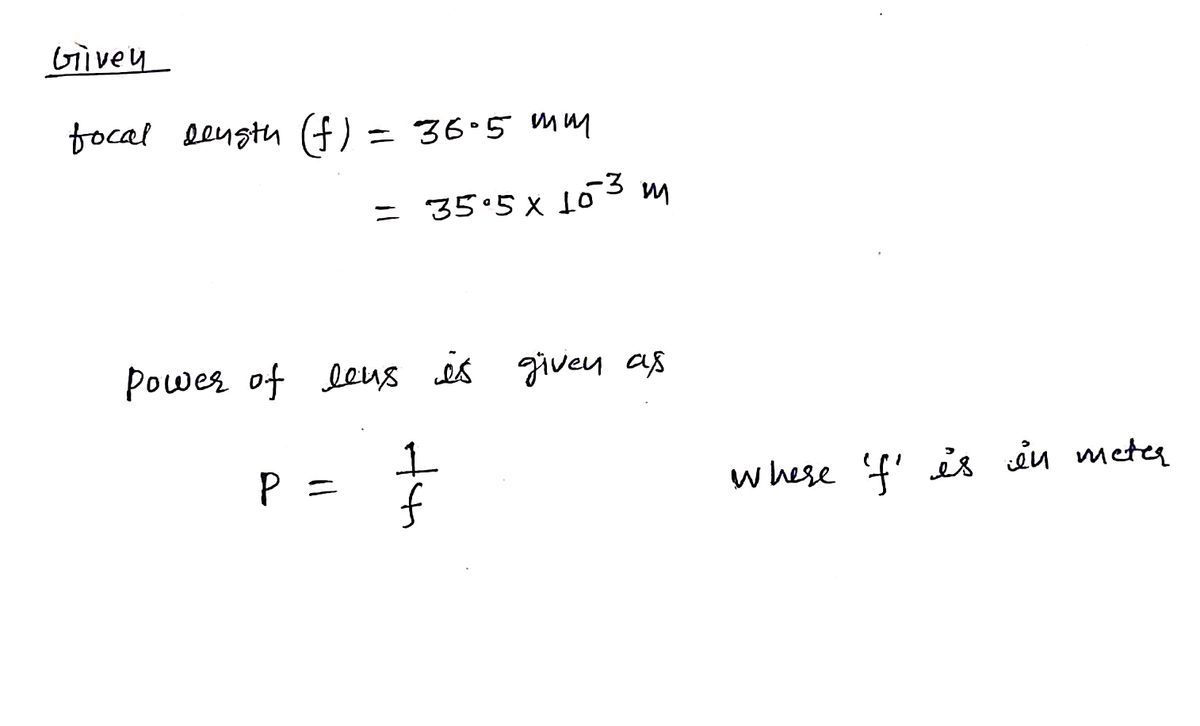 Given
focal length (f) = 36.5 mm
= 35.5 x 10^-3 m
Power of lens is given as
P = 1/f where 'f' is in meter